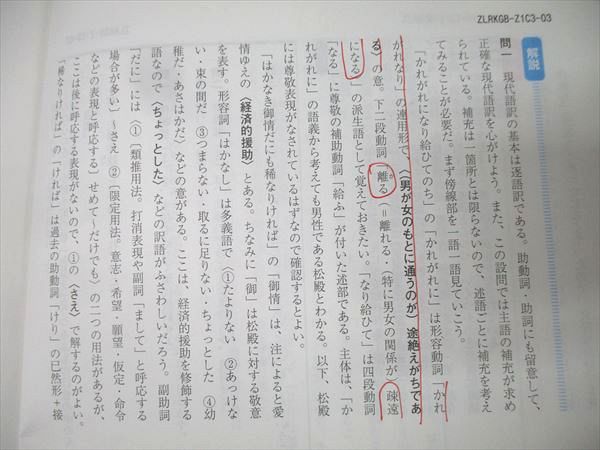 ZLRKGB-Z1C3-03
解説
問一　現代語訳の基本は逐語訳である。助動詞・助詞にも留意して、
正確な現代語訳を心がけよう。また、この設問では主語の補充が求め
られている。補充は一箇所とは限らないので、述語ごとに補充を考え
てみることが必要だ。まず傍線部を一語一語見ていこう。
「かれがれになり給ひてのち」の「かれがれに」は形容動詞「かれ
がれなり」の連用形で、〈(男が女のもとに通うのが)途絶えがちであ
る〉の意。下二段動詞「離る」(＝離れる・(特に男女の関係が)疎遠
になる)の派生語として覚えておきたい。「なり給ひて」は四段動詞
「なる」に尊敬の補助動詞「給ふ」が付いた述部である。主体は、「か
れがれに」の語義から考えても男性である松殿とわかる。以下、松殿
には尊敬表現がなされているはずなので確認するとよい。
「はかなき御情だにも稀なりければ」の「御情」は、注によると愛
情ゆえの〈経済的援助〉とある。ちなみに「御」は松殿に対する敬意
を表す。形容詞「はかなし」は多義語で〈①たよりない　②あっけな
い・束の間だ　③つまらない・取るに足りない・ちょっとした　④幼
稚だ・あさはかだ〉などの意がある。ここは、経済的援助を修飾する
語なので〈ちょっとした〉などの訳語がふさわしいだろう。副助詞
「だに」には〈①〔類推用法。打消表現や副詞「まして」と呼応する
場合が多い〕～さえ　②〔限定用法。意志・希望・願望・仮定・命令
などの表現と呼応する〕せめて～だけでも〉の二つの用法があるが、
ここは後に呼応する表現がないので、①の〈さえ〉で解するのがよい。
「稀なりければ」の「ければ」は過去の助動詞「けり」の已然形＋接